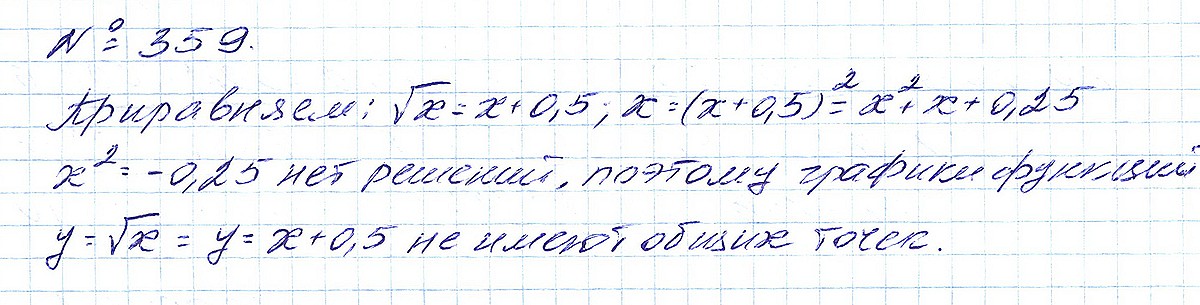 № 359.
Приравняем: √x = x + 0,5; x = (x + 0,5)² = x² + x + 0,25
x² = -0,25 нет решений, поэтому графики функций
y = √x = y = x + 0,5 не имеют общих точек.